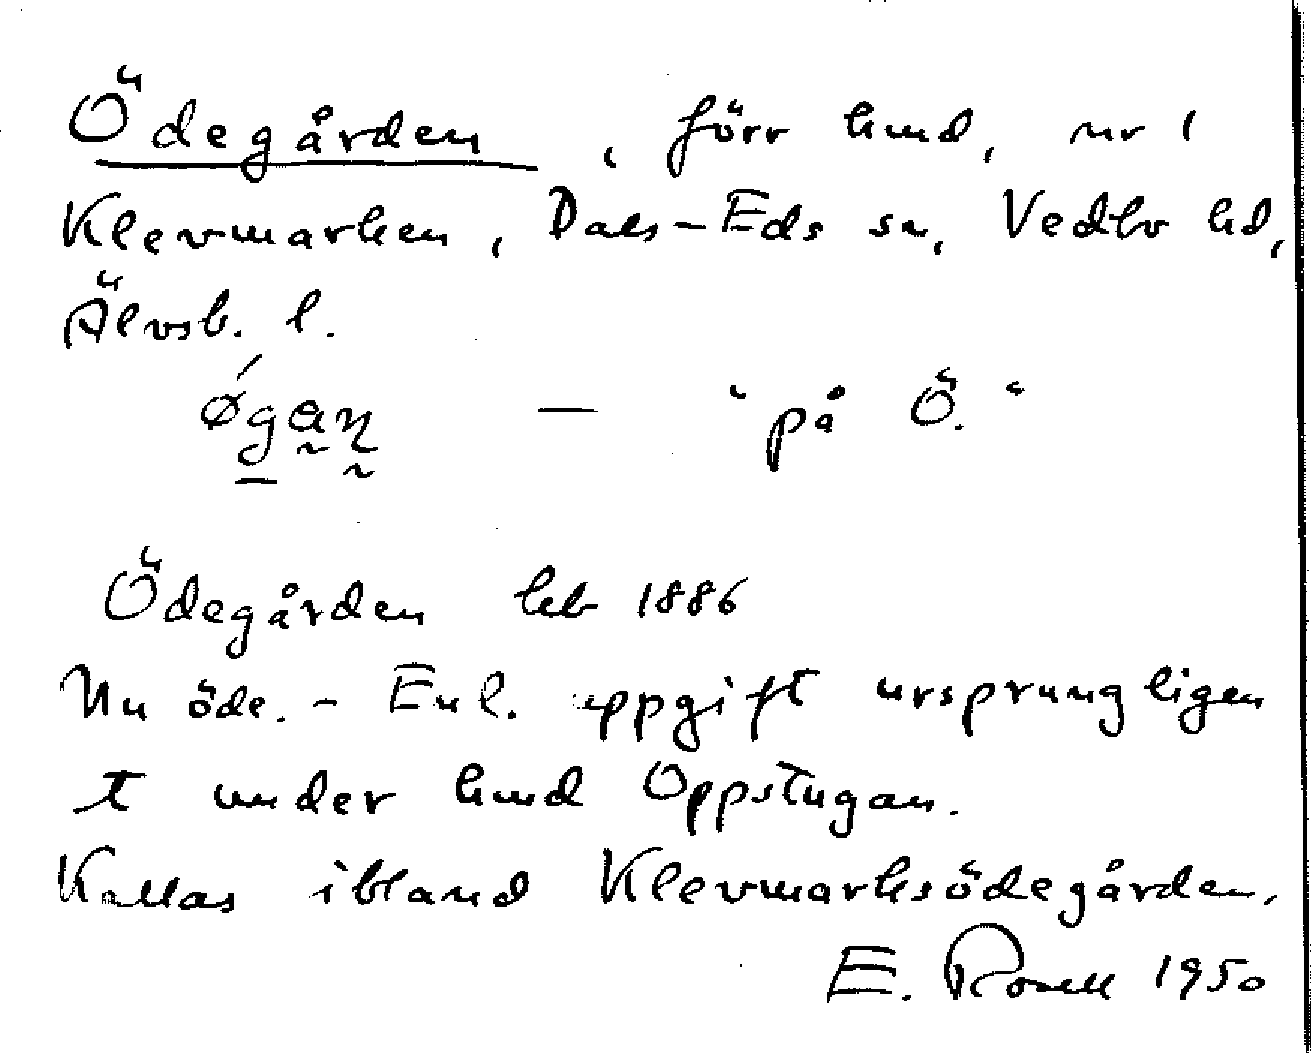 Ödegården, förr hmd, nr 1
Klevmarken, Dals-Eds sn, Vedbo hd,
Älvsb. l.
ǿgan̥ — "på Ö."
Ödegården hb 1886
Nu öde. - Enl. uppgift ursprungligen
t under hmd Oppstugan.
Kallas ibland Klevmarksödegården.
E. Rosell 1950